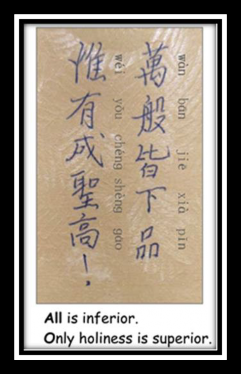 萬般皆下品
wàn bān jiē xià pǐn
惟有成聖高!
wéi yǒu chéng shèng gāo
All is inferior.
Only holiness is superior.